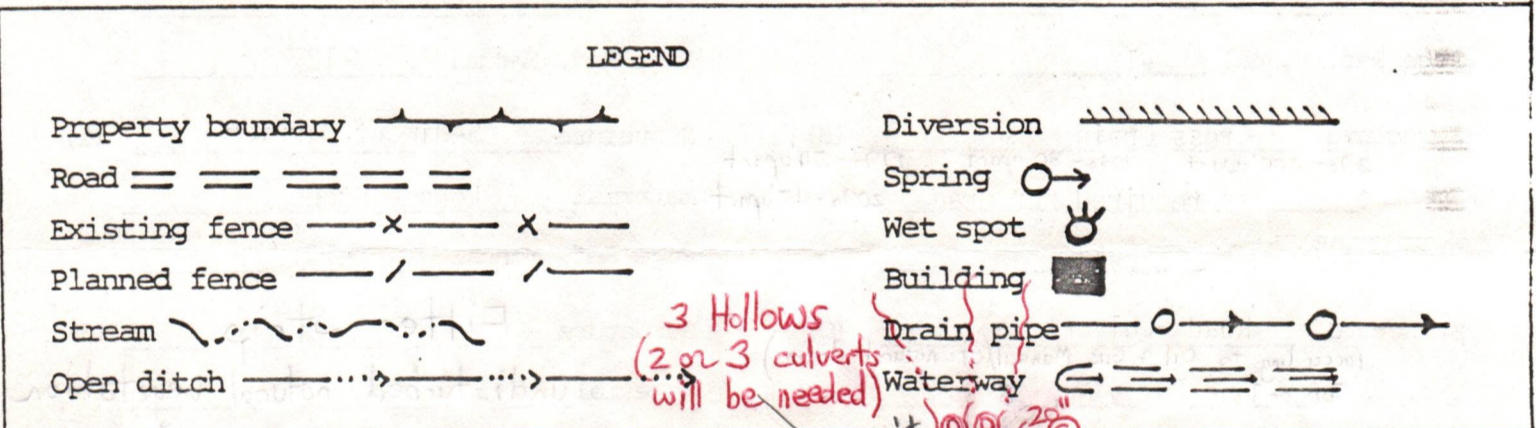 LEGEND
Property boundary
Road
Existing fence
Planned fence
Stream
Open ditch
Diversion
Spring
Wet spot
Building
Drain pipe
Waterway
3 Hollows
(2 or 3 culverts
will be needed)
20"